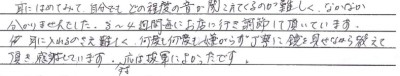 耳にはめてみて自分もどの程度の音が聞こえてくるのか難しく、なかなか
分かりませんでした。3〜4週間毎にお店に行き調節して頂いています。
耳に入れるのさえ難しく何度も何度も嫌がらず丁寧に鏡を見せながら教えて
頂き感謝しています。応対は非常によかったです。